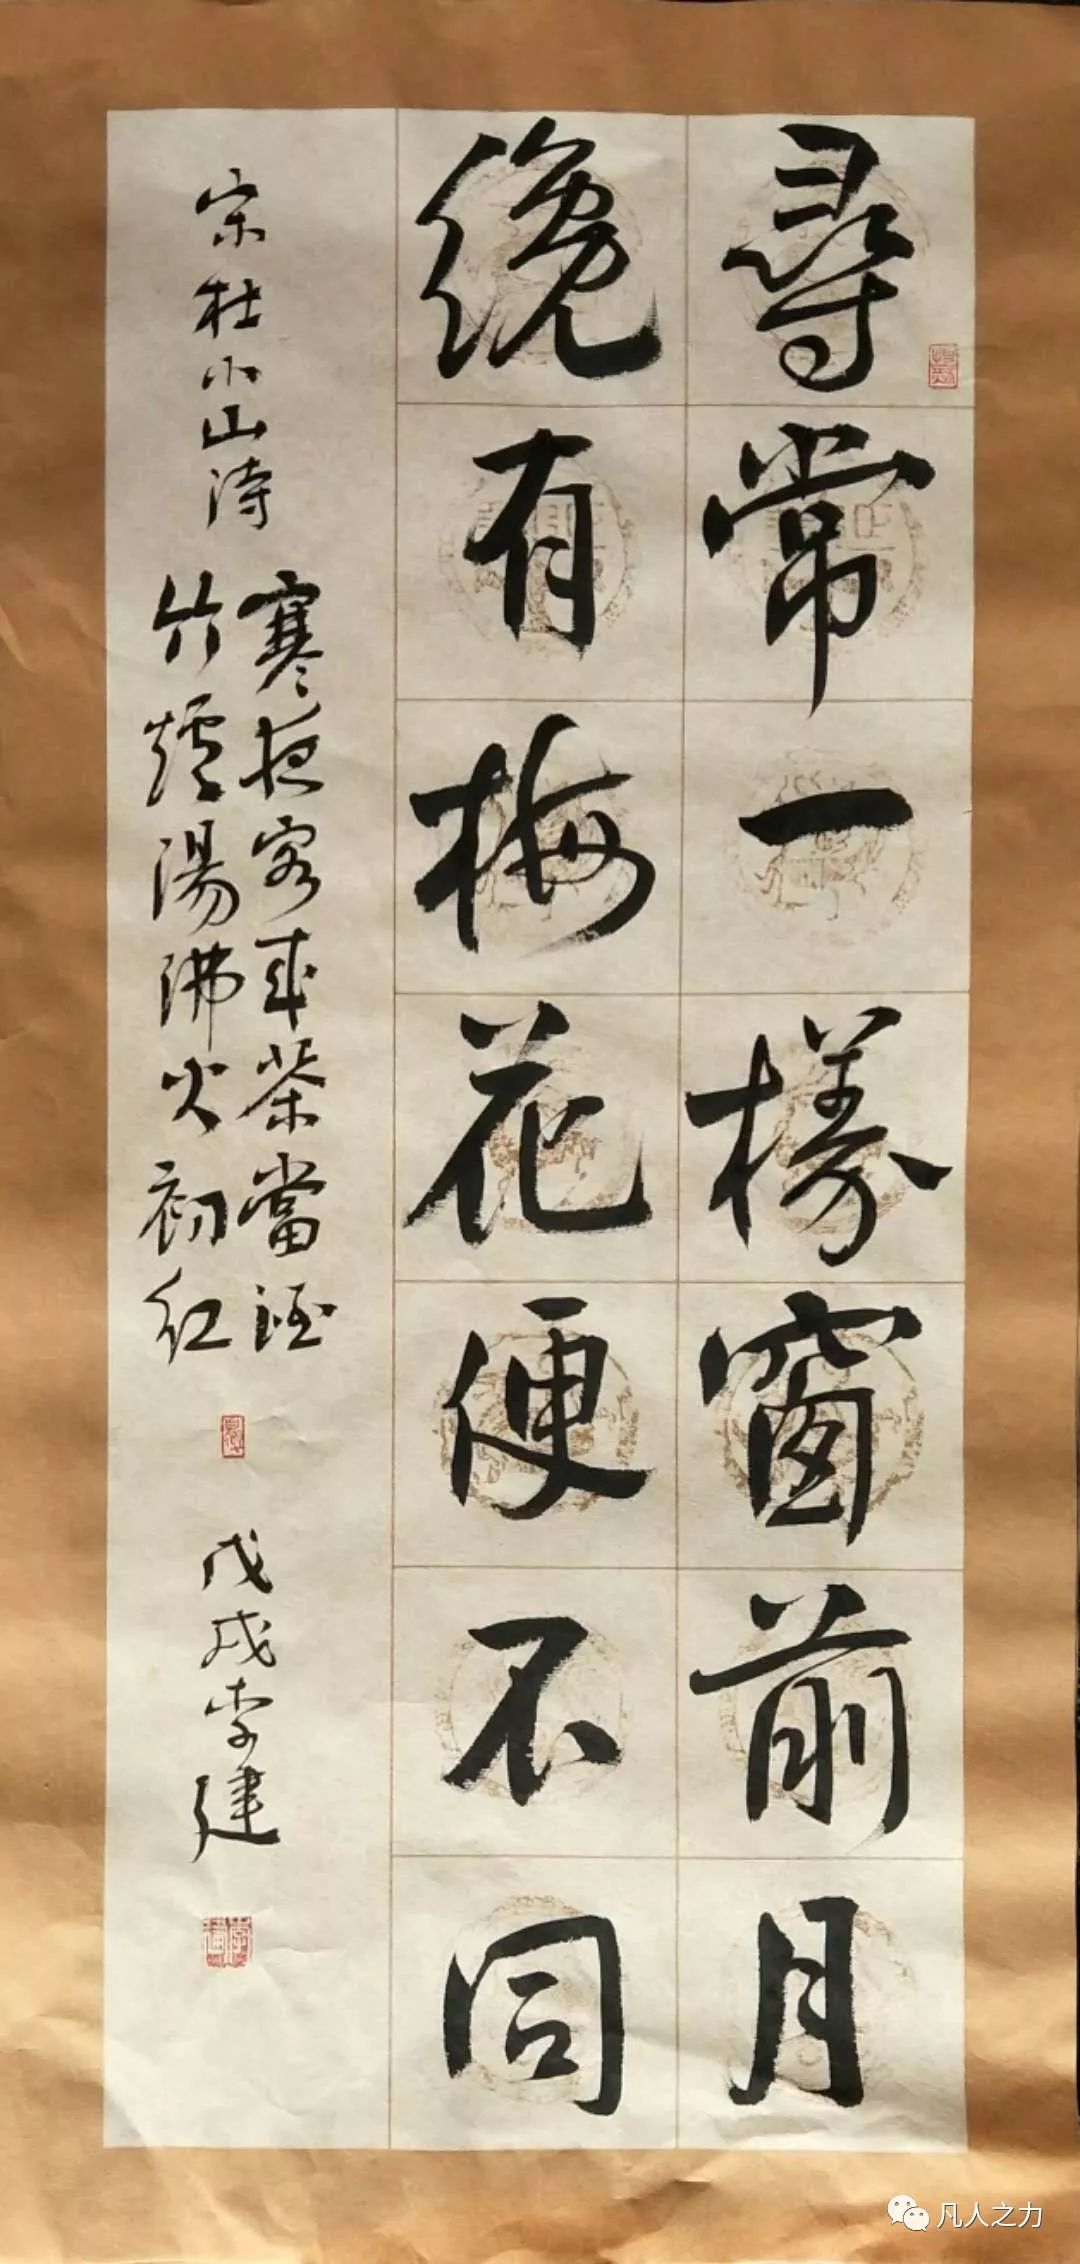 尋常一樣窗前月
纔有梅花便不同
宋杜小山詩
寒夜客來茶當酒
竹爐湯沸火初紅
戊戌李建
凡人之力